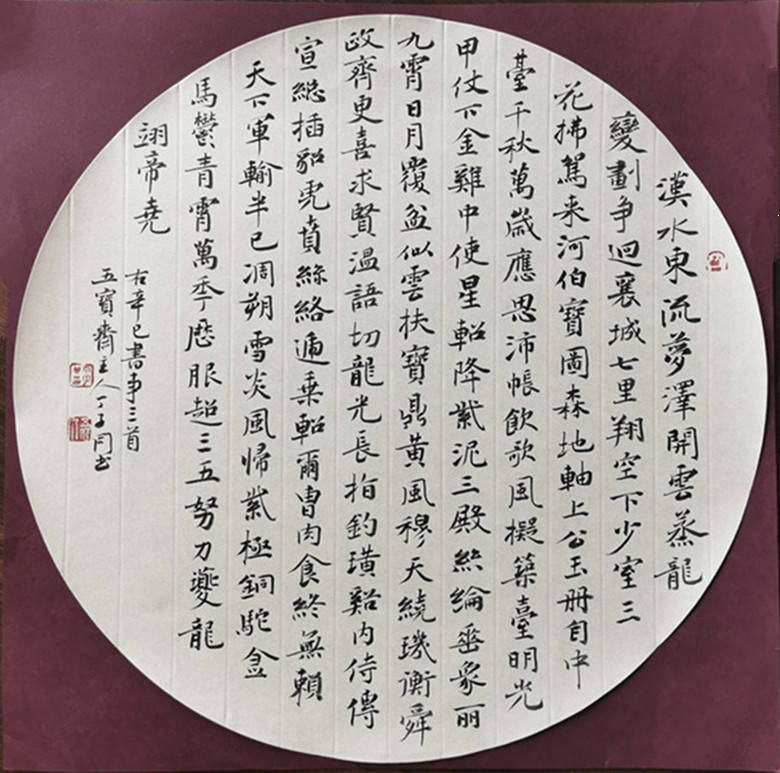 漢水東流夢澤開雲蒸龍
變劃爭迴襄城七里翔空下少室三
花拂駕来河伯寶啚森地軸上公玉冊自中
臺千秋萬歲應思沛帳飲歌風擬築臺明光
甲仗下金雞中使星軺降紫泥三殿絲綸垂象丽
九霄日月覆盆似雲扶寶鼎黄風穆天繞璣衡舜
政齊更喜求賢温語切龍光長指釣璜谿内侍傳
宣總插貂虎賁絲絡遍乗軺爾曹肉食終無賴
天下軍輸半已凋朔雪炎風帰紫極銅駝金
馬鬱青霄萬季歷服超三五努力夔龍
翊帝堯
右辛巳書事三首
五寶齋主人丁子問书